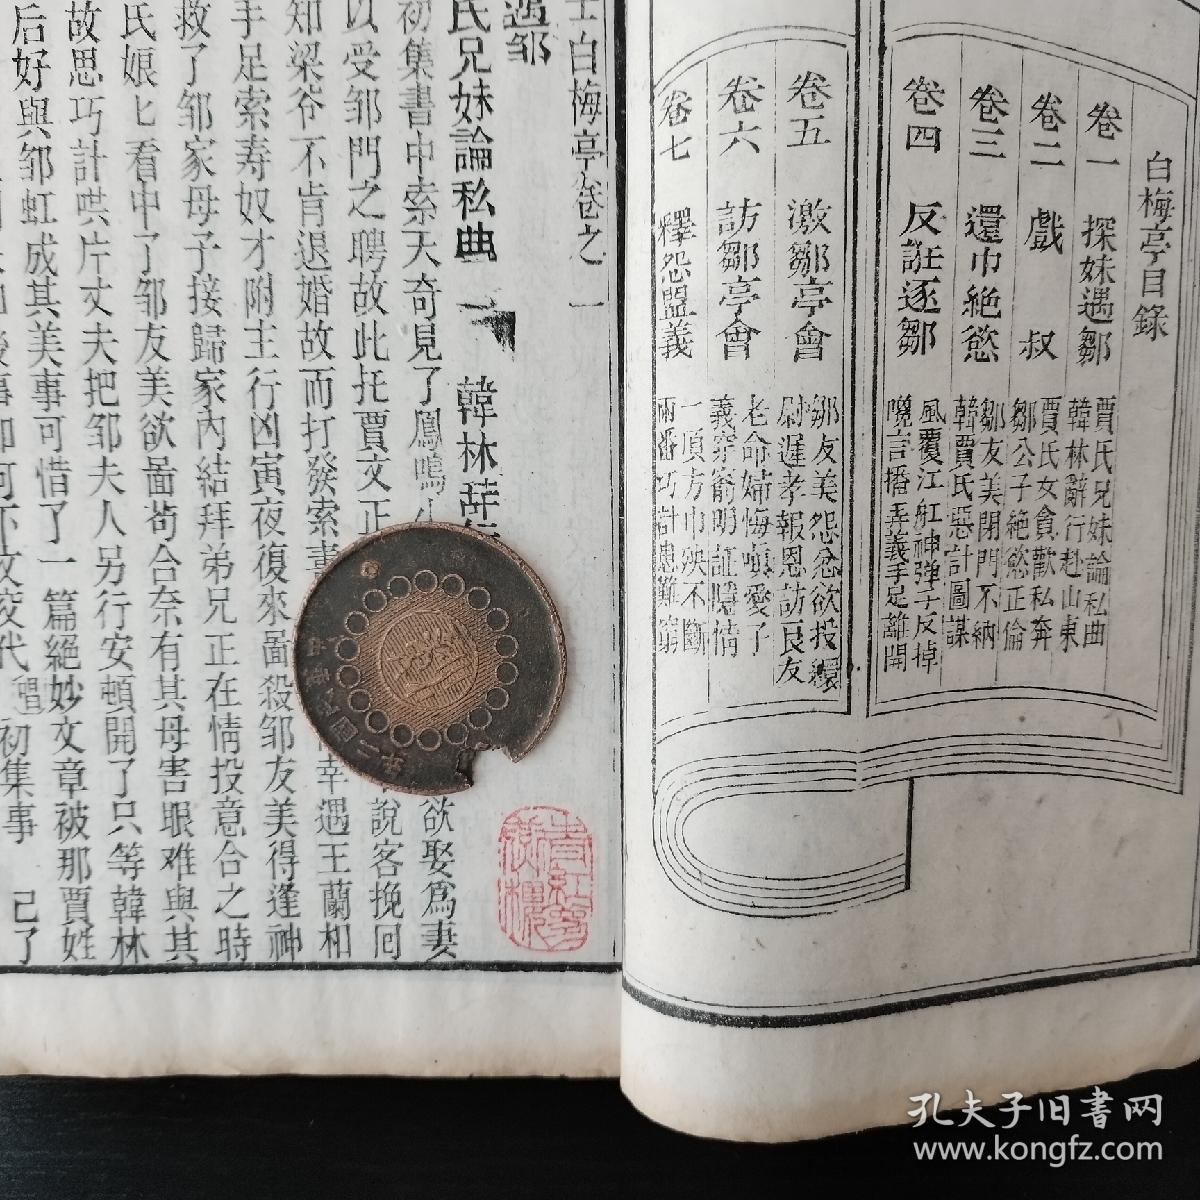 白梅亭目錄
卷一 探妹遇鄒 賈氏兄妹論私曲
韓林辭行赴山東
卷二 戲叔 賈氏女貪歡私奔
鄒公子絕慾正倫
卷三 還巾絕慾 鄒友美閉門不納
韓賈氏惡計圖謀
卷四 反誑逐鄒 風覆江舡神弹子反掉
嘵言播弄義手足離開
卷五 激鄒亭會 邹友美怨忿欲投繯
尉遲孝報恩訪良友
卷六 訪鄒亭會 老命婦悔嗔愛子
義穿窬明証隱情
卷七 釋怨盟義 一頂方巾殃不斷
兩番巧計患難窮
白梅亭卷之一
遇邹
氏兄妹論私曲 韓林辞行
初集書中索天奇見了鳳鳴 欲娶爲妻
以受邹門之聘故此托賈文正 說客挽囘
知梁爷不肯退婚故而打發索壽 幸遇王蘭相
手足索寿奴才附主行凶寅夜復來啚殺邹友美得逢神
救了邹家母子接歸家內結拜弟兄正在情投意合之時
氏娘匕看中了邹友美欲啚苟合奈有其母害眼难與其
故思巧計哄片丈夫把邹夫人另行安頓開了只等韓林
后好與邹虹成其美事可惜了一篇絕妙文章被那賈姓
後事如何下文交代 唱 初集事 已了
中華民國二年
青紅篸
孔夫子旧书网
www.kongfz.com